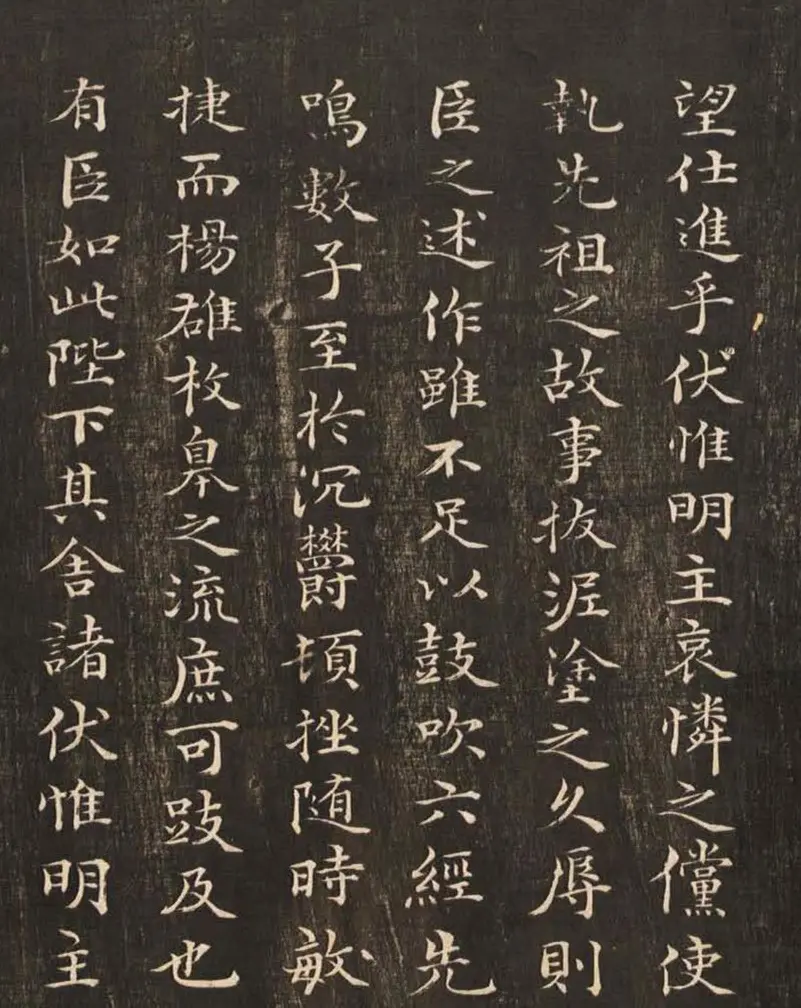 望仕進乎伏惟明主哀憐之儻使
執先祖之故事拔泥塗之久辱則
臣之述作雖不足以鼓吹六經先
鳴數子至於沉欝頓挫随時敏
捷而楊雄枚皋之流庶可跂及也
有臣如此陛下其舍諸伏惟明主